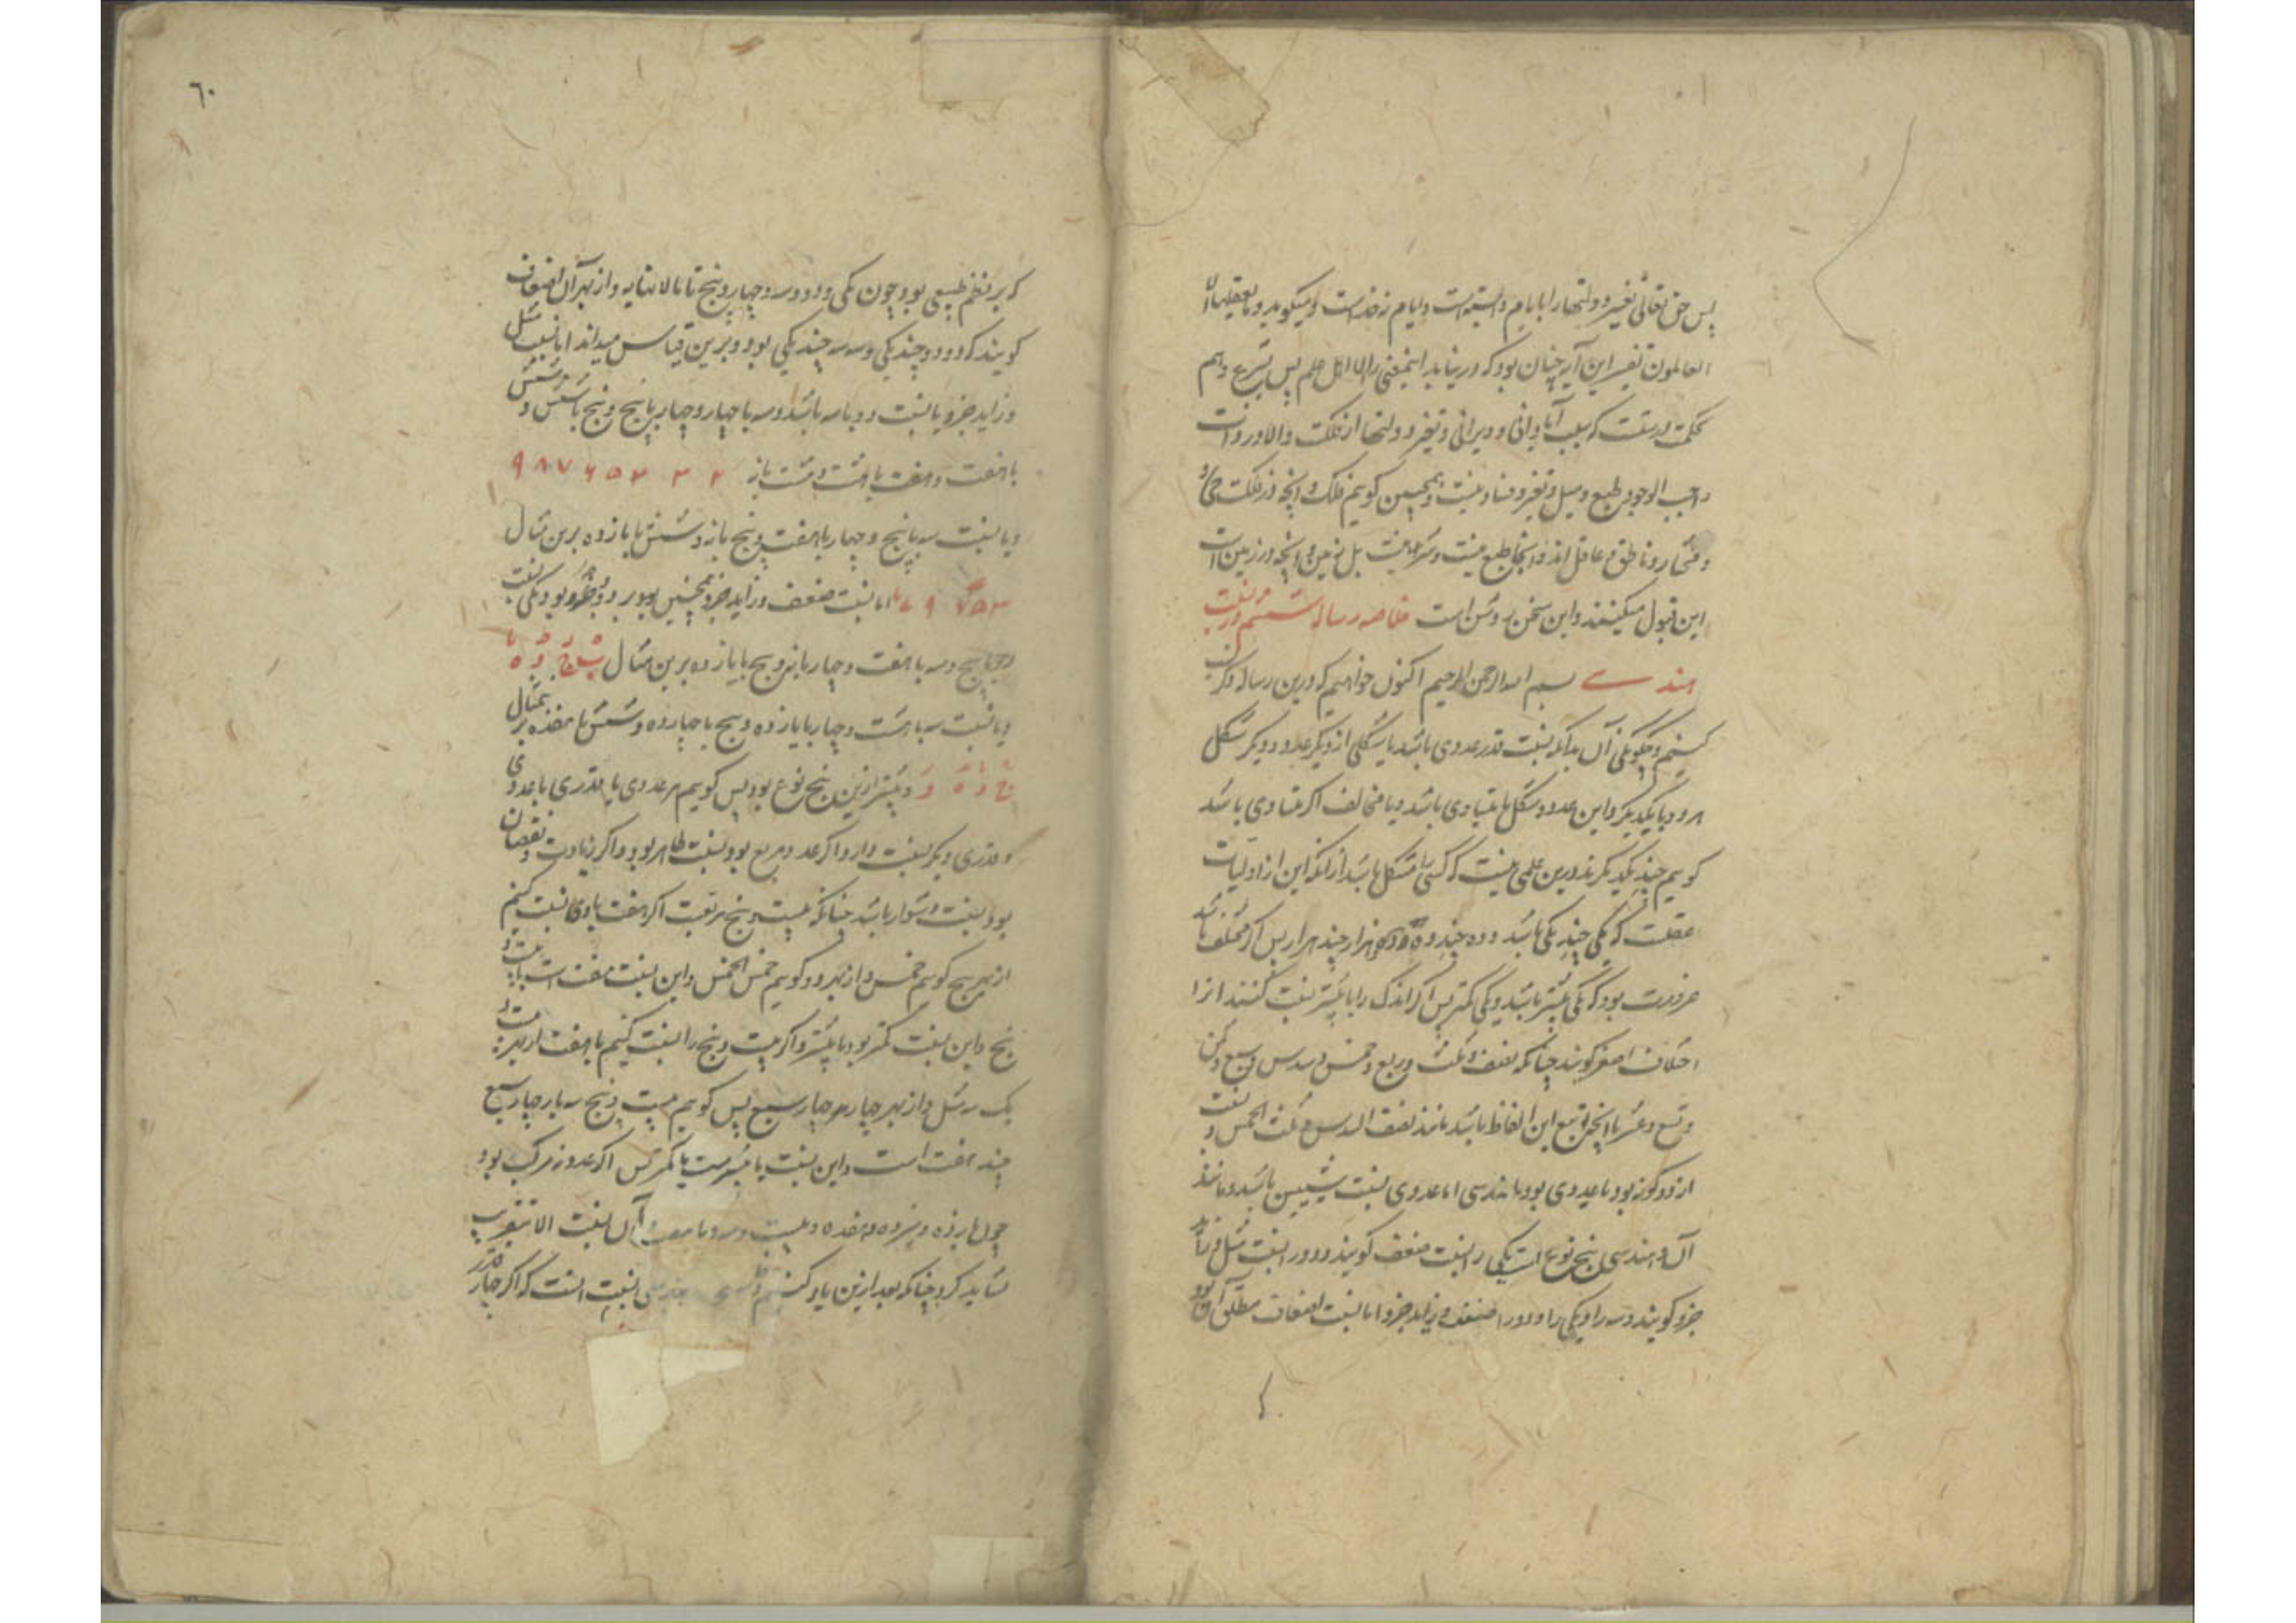 پس حق تعالی تغیر دولتها را بایام دانسته است و ایام زخذاست و میگوید و ما یعقلها الا
العالمون تفسیر این آیه چنان بود که در نیابد اینمعنی را الا اهل علم پس بشرع و هم
حکمت درستست که سبب آبادانی و ویرانی و تغیر دولتها از فلکست و الا در ذات
واجب الوجود طبع و میل و تغیر و فساد نیست و همچنین کویم فلک و آنچه در فلکست حی‌اند
و مختار و ناطق و عاقل‌اند و آنجا طبع نیست و شر نیست بل زمین و آنچه در زمین است
این قبول میکنند و این سخن روشن است خلاصه رساله ششم در نسبت
هندسے بسم الله الرحمن الرحیم اکنون خواهیم که درین رساله ذکر آن
کنیم و چکونکی آن بدانکه نسبت قدر عددی باشد یا شکلی از دیکر عدد و دیکر شکل
هر دو با یکدیکر و این عدد و شکل یا متساوی باشد و یا مخالف اکر متساوی باشد
کویم چند یکدیکرند و درین علمی نیست که کسی را مشکل باشد از آنکه این از اولیات
عقلست که یکی چند یکی باشد و ده چند ده و هزار چند هزار پس اکر مختلف باشد
ضرورت بود که یکی بیشتر باشد و یکی کمتر پس اکر اندک را با بیشتر نسبت کنند آنرا
اختلاف اصغر کویند چنانکه نصف و ثلث و ربع و خمس و سدس و سبع و ثمن
و تسع و عشر یا آنچه تبع این الفاظ باشد مانند نصف السدس و ثلث الخمس و نسبت
از دو کونه بود یا عددی بود یا هندسی اما عددی نسبت شیبین باشد و مانند
آن و هندسی پنج نوع است یکی را نسبت ضعف کویند و دو را نسبت مثل و زاید
جزو کویند و سه را و یکی را و دو را ضعف و زاید جزو اما نسبت اضعاف مطلق آن بود
٦٠
که بر نظم طبیعی بود چون یکی و دو و سه و چهار و پنج تا بالا نهایه و از بهر آن اضعاف
کویند که دو دو چند یکی و سه سه چند یکی بود و برین قیاس میداند اما نسبت مثل
و زاید جزو یا نسبت دو با سه باشد و سه با چهار و چهار با پنج و پنج با شش و شش
با هفت و هفت با هشت و هشت با نه ۲ ۳ ۴ ۵ ۶ ۷ ۸ ۹
و یا نسبت سه با پنج و چهار با هفت و پنج با نه و شش با یازده برین مثال
اما نسبت ضعف و زاید جزو همچنین بود بر دو جزو بود یکی نسبت
با پنج و سه با هفت و چهار با نه و پنج با یازده برین مثال
و یا نسبت سه با هشت و چهار با یازده و پنج با چهارده و شش با هفده بر مثال
و بیشتر ازین پنج نوع بود پس کویم هر عددی یا قدری با عددی
و قدری دیکر نسبت دارد اکر عدد مربع بود نسبت ظاهر بود و اکر زیادت و نقصان
بود نسبت دشوار باشد چنانکه بیست و پنج مربعست اکر هفت با وی نسبت کنیم
از بهر پنج کویم خمس و از بهر دو کویم خمس الخمس و این نسبت هفت است با بیست و
پنج و این نسبت کمتر بود با بیشتر و اکر بیست و پنج را نسبت کنیم با هفت از بهر بیست و
یک سه مثل و از بهر چهار چهار سبع پس کویم بیست و پنج سه بار و چهار سبع
چند هفت است و این نسبت با بیشترست با کمتر پس اکر عدد نه مرکب بود
چون یازده و سیزده و هفده و بیست و سه و آن نسبت الا بتقریب
نشاید کرد چنانکه بعد ازین یاد کنیم نسبت آنست که اکر چهار قدر